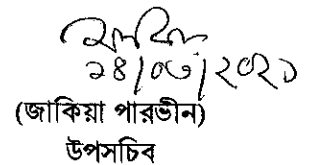 ২৪/০৬/২০২১
(জাকিয়া পারভীন)
উপসচিব